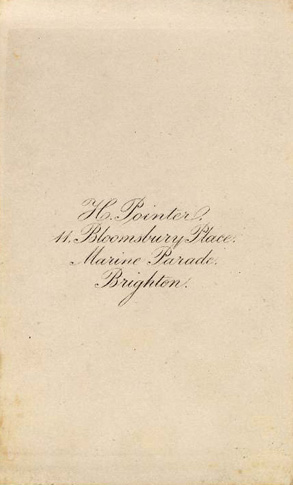 H. Pointer.
11. Bloomsbury Place.
Marine Parade.
Brighton.